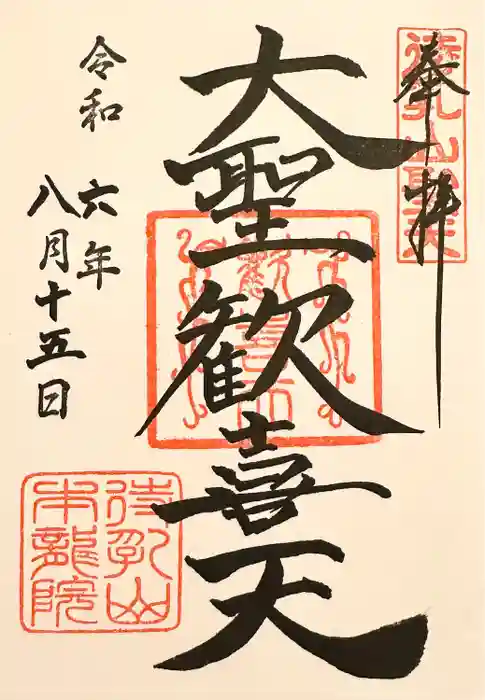 奉拝
待乳山聖天
大聖歓喜天
令和六年
八月十五日
待乳山
本龍院